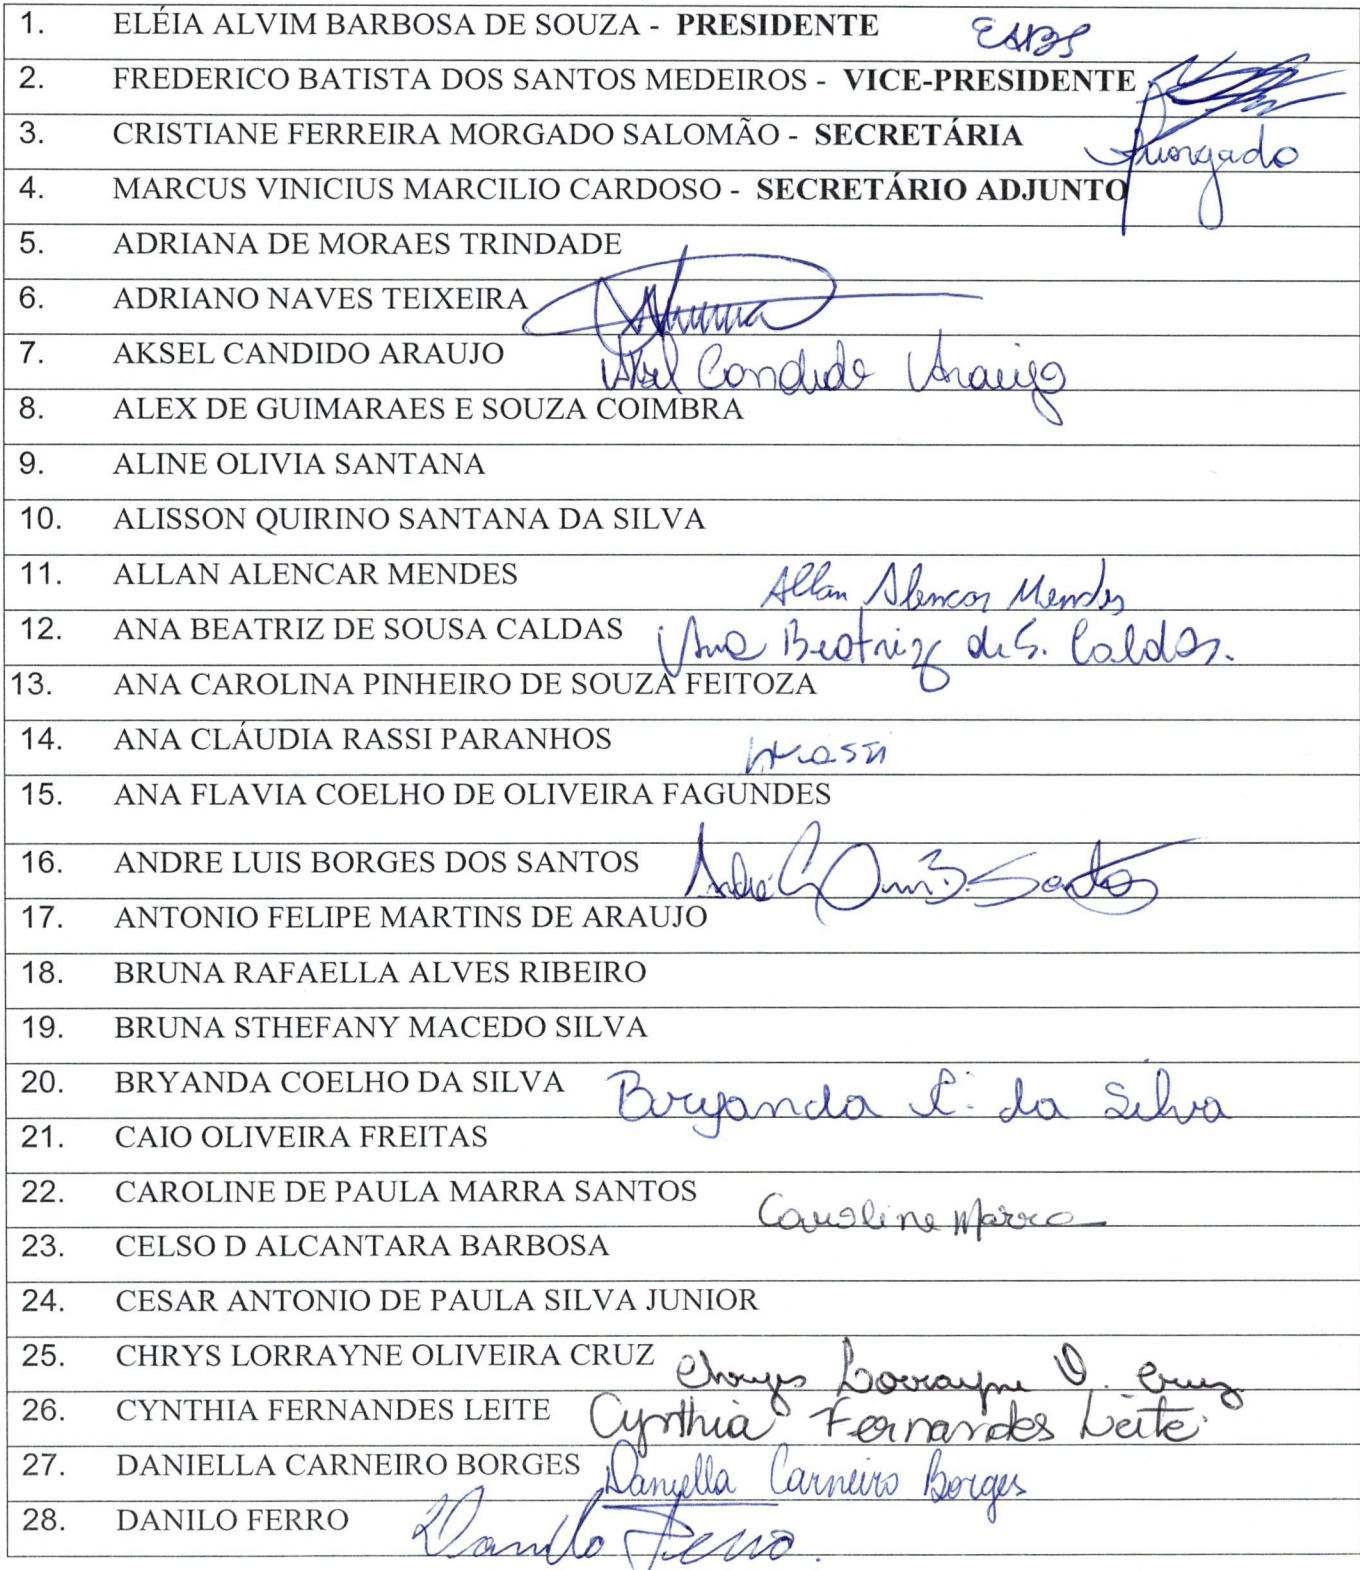 1. ELÉIA ALVIM BARBOSA DE SOUZA - PRESIDENTE EABS
2. FREDERICO BATISTA DOS SANTOS MEDEIROS - VICE-PRESIDENTE
3. CRISTIANE FERREIRA MORGADO SALOMÃO - SECRETÁRIA Fmorgado
4. MARCUS VINICIUS MARCILIO CARDOSO - SECRETÁRIO ADJUNTO
5. ADRIANA DE MORAES TRINDADE
6. ADRIANO NAVES TEIXEIRA
7. AKSEL CANDIDO ARAUJO Aksel Candido Araujo
8. ALEX DE GUIMARAES E SOUZA COIMBRA
9. ALINE OLIVIA SANTANA
10. ALISSON QUIRINO SANTANA DA SILVA
11. ALLAN ALENCAR MENDES Allan Alencar Mendes
12. ANA BEATRIZ DE SOUSA CALDAS Ana Beatriz de S. Caldas.
13. ANA CAROLINA PINHEIRO DE SOUZA FEITOZA
14. ANA CLÁUDIA RASSI PARANHOS
15. ANA FLAVIA COELHO DE OLIVEIRA FAGUNDES
16. ANDRE LUIS BORGES DOS SANTOS André Luis B. Santos
17. ANTONIO FELIPE MARTINS DE ARAUJO
18. BRUNA RAFAELLA ALVES RIBEIRO
19. BRUNA STHEFANY MACEDO SILVA
20. BRYANDA COELHO DA SILVA Bryanda C. da Silva
21. CAIO OLIVEIRA FREITAS
22. CAROLINE DE PAULA MARRA SANTOS Caroline Marra
23. CELSO D ALCANTARA BARBOSA
24. CESAR ANTONIO DE PAULA SILVA JUNIOR
25. CHRYS LORRAYNE OLIVEIRA CRUZ Chrys Lorrayne O. Cruz
26. CYNTHIA FERNANDES LEITE Cynthia Fernandes Leite
27. DANIELLA CARNEIRO BORGES Daniella Carneiro Borges
28. DANILO FERRO Danilo Ferro.